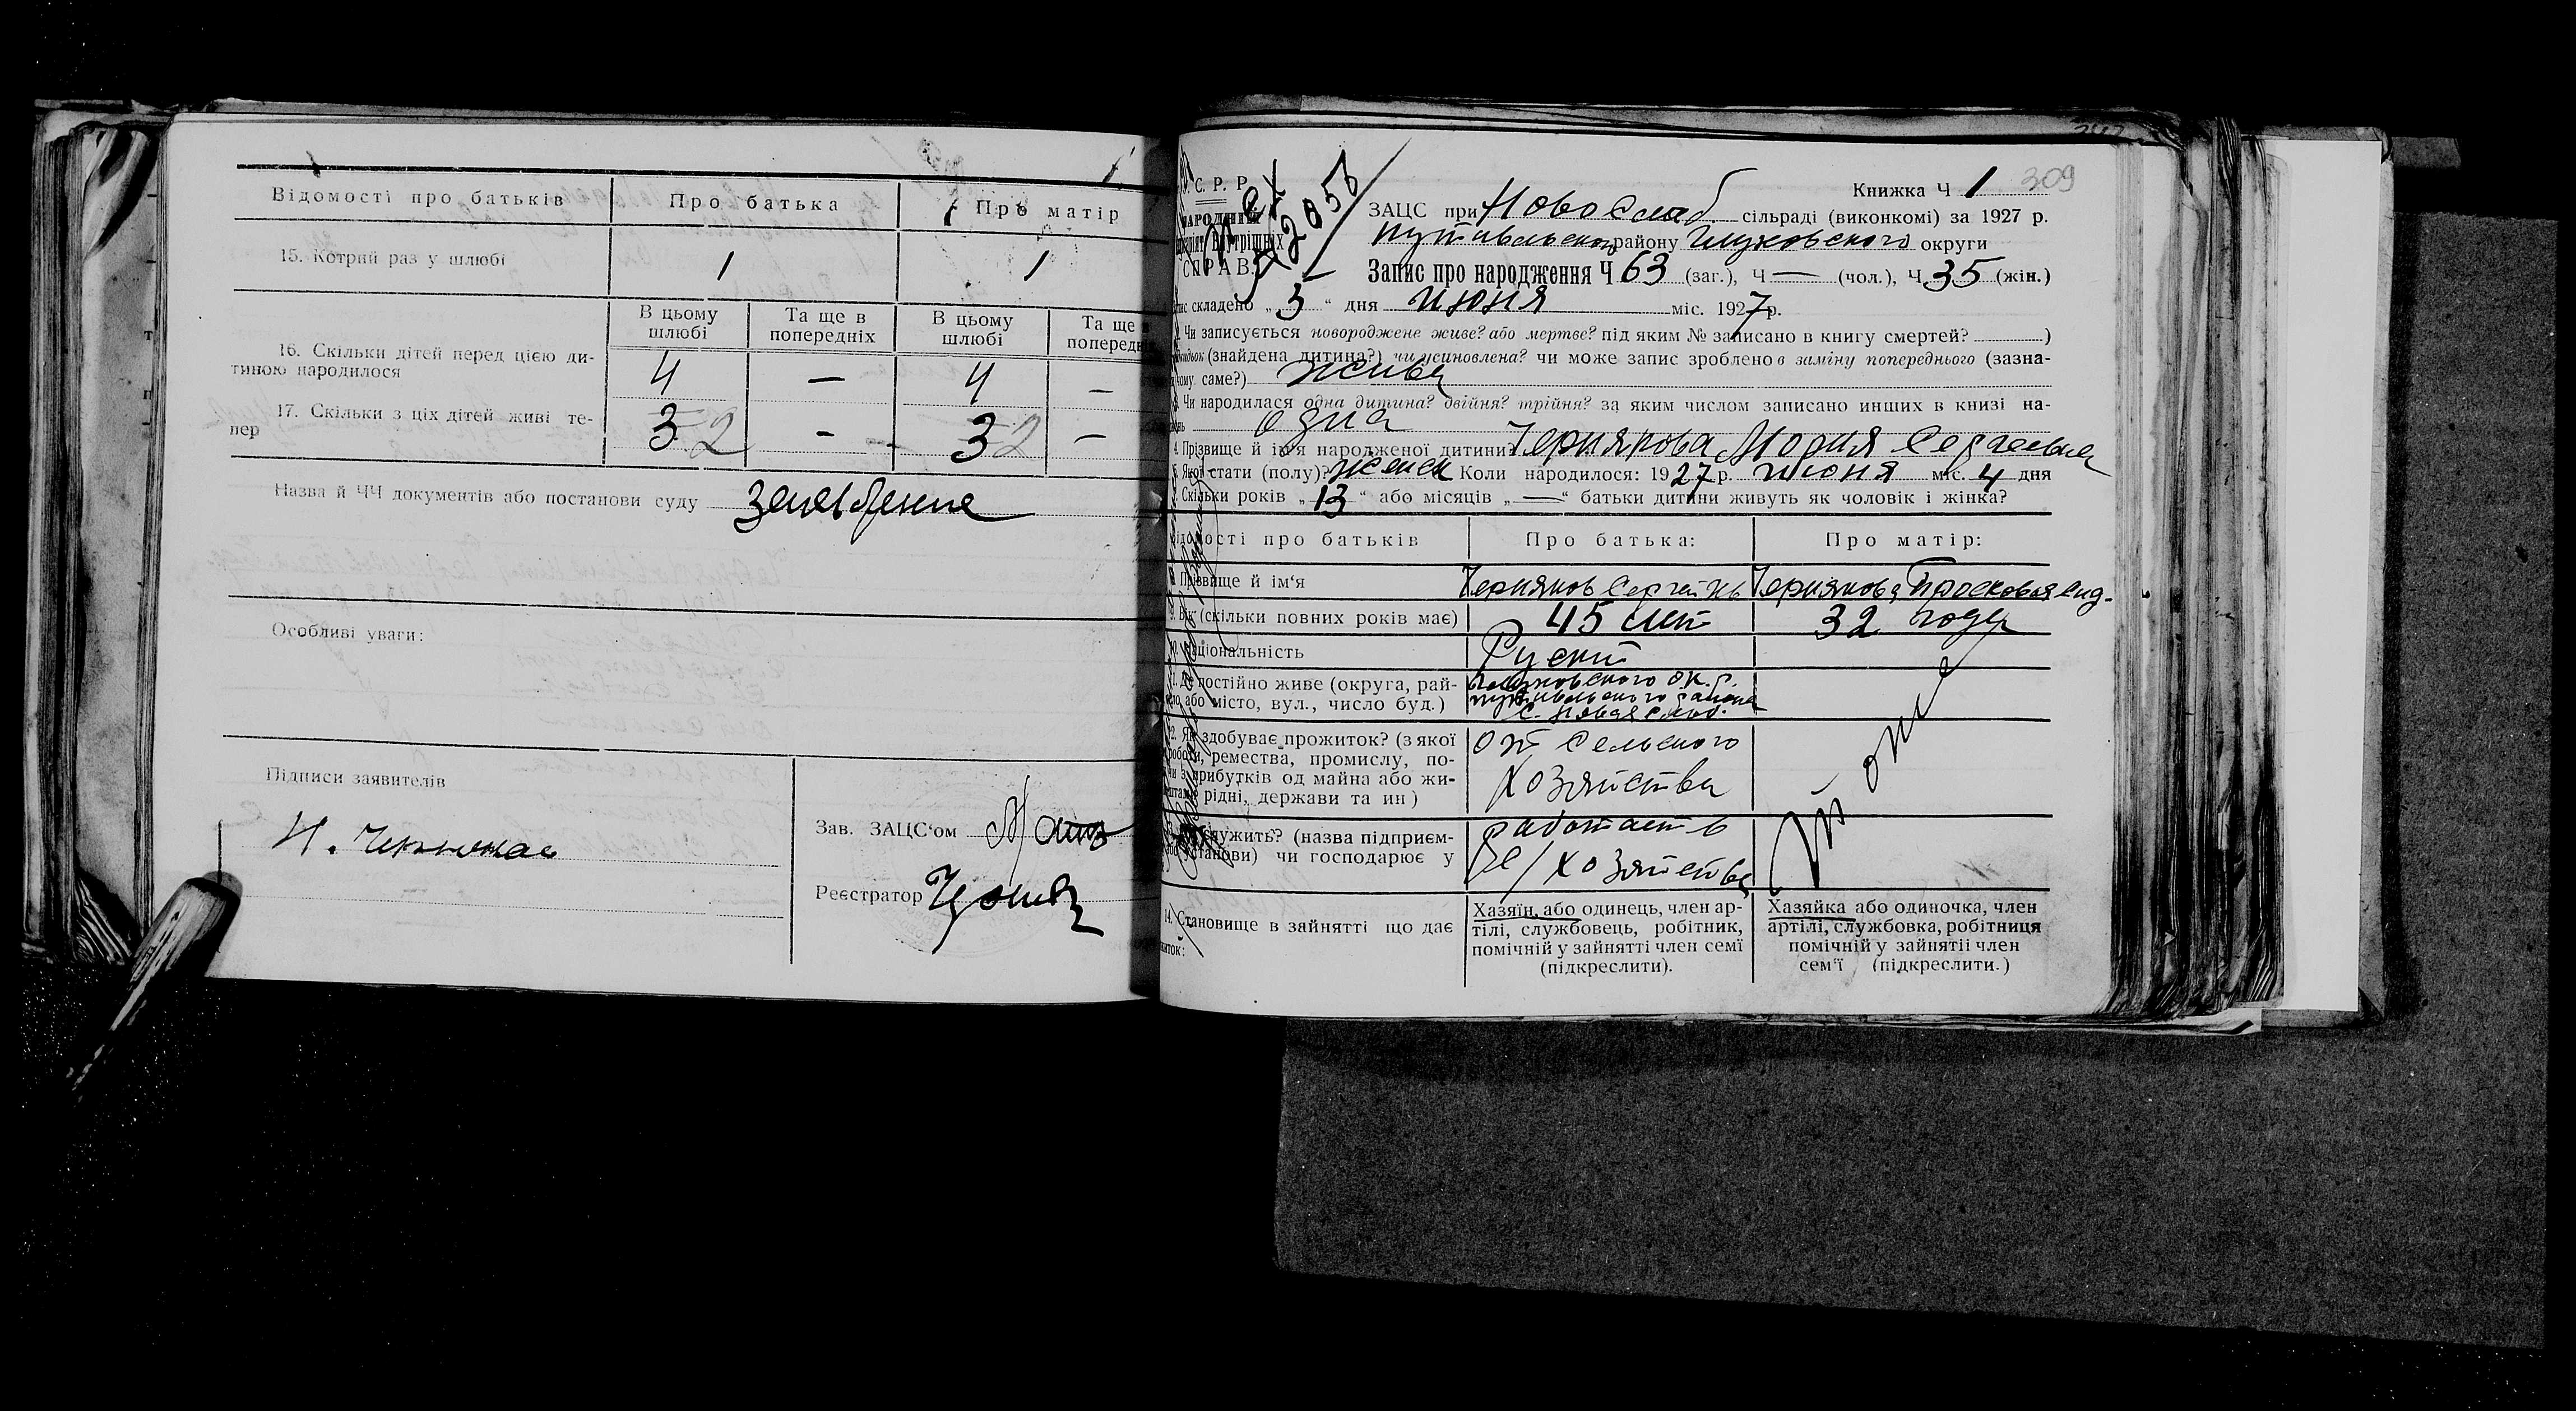 Відомості про батьків Про батька Про матір
15. Котрий раз у шлюбі 1 1
В цьому шлюбі Та ще в попередніх В цьому шлюбі Та ще в поперед
16. Скільки дітей перед цією ди-
тиною народилося 4 — 4 —
17. Скільки з ціх дітей живі те-
пер 3 2 — 3 2 —
Назва й ЧЧ документів або постанови суду
Особливі уваги:
Підписи заявителів
Зав. ЗАЦС'ом
Реєстратор
309
С. Р. Р.
НАРОДНИЙ
Внутрішніх
СПРАВ.
Книжка Ч 1
ЗАЦС при Новослоб. сільраді (виконкомі) за 1927 р.
Путивльского району Глуховского округи
Запис про народження Ч 63 (заг.), Ч — (чол.), Ч. 35 (жін.)
складено „ 5 “ дня июня міс. 1927 р.
Чи записується новороджене живе? або мертве? під яким № записано в книгу смертей? )
(знайдена дитина?) чи усиновлена? чи може запис зроблено в заміну попереднього (зазна-
чому саме?) жива
Чи народилася одна дитина? двійня? трійня? за яким числом записано инших в книзі на-
одна
4. Прізвище й ім'я народженої дитини? Чернякова Мария Сергеевна
Якої стати (полу)? женск Коли народилося: 1927 р. июня міс. 4 дня
Скільки років „ 13 “ або місяців „ — “ батьки дитини живуть як чоловік і жінка?
Відомості про батьків Про батька: Про матір:
Прізвище й ім'я Черняков Сергей Чернякова Просковья
9. Вік (скільки повних років має) 45 лет 32 года
10. Національність Руский
11. Де постійно живе (округа, рай-
або місто, вул., число буд.) Глуховского ок.
Путивльского района
с. Новая Слоб.
12. Як здобуває прожиток? (з якої
роботи, ремества, промислу, по-
чи з прибутків од майна або жи-
рідні, держави та ин) от сельского
хозяйства
служить? (назва підприєм-
установи) чи господарює у работает в
с/хозяйстве
14. Становище в зайнятті що дає
житок:
Хазяїн, або одинець, член ар-
тілі, службовець, робітник,
помічній у зайнятті член семї
(підкреслити).
Хазяйка або одиночка, член
артілі, службовка, робітниця
помічній у зайнятіі член
сем'ї (підкреслити.)